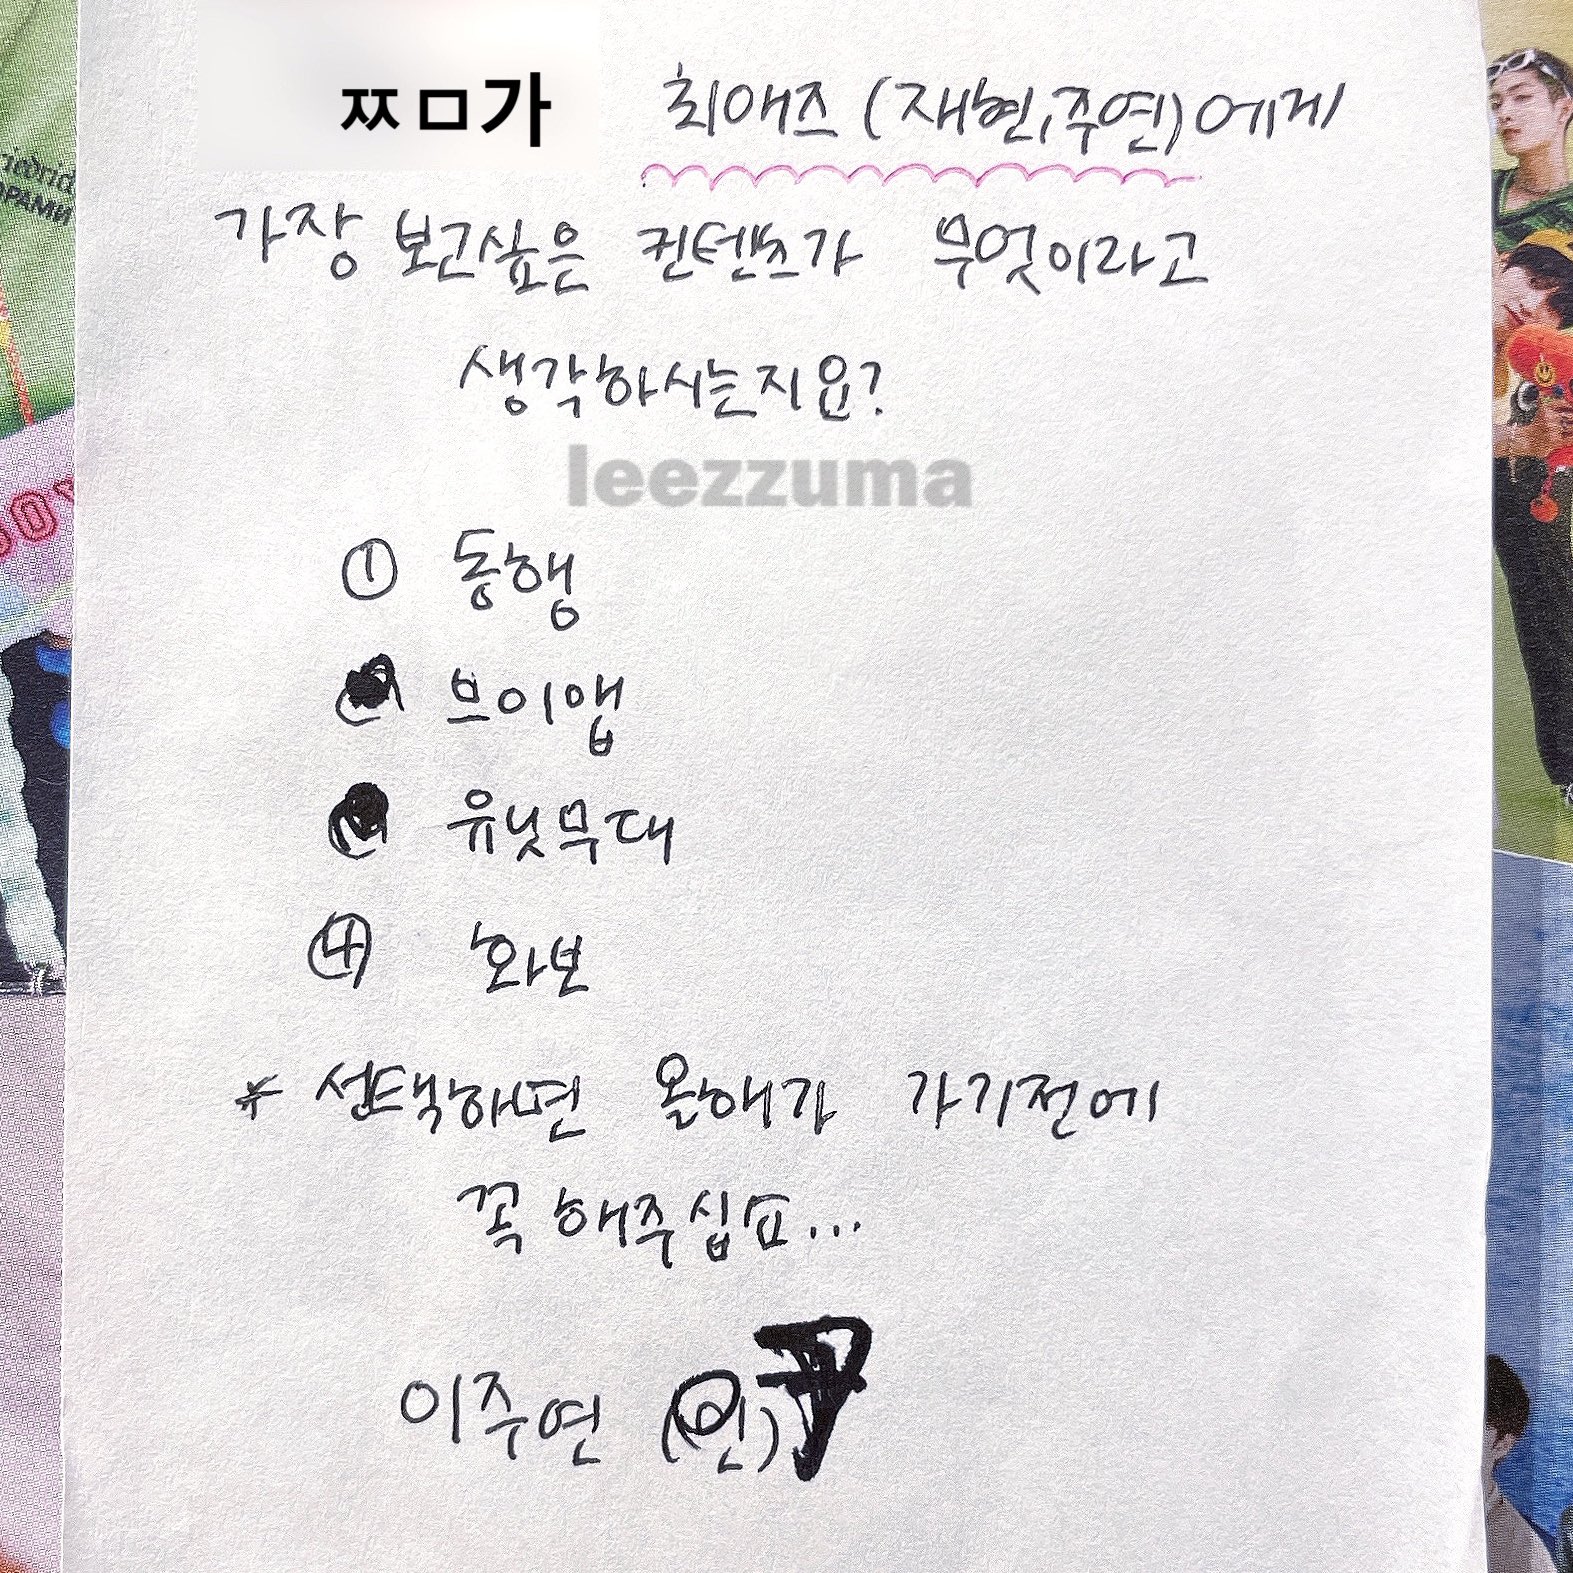 ㅉㅁ가 최애즈 (재현,주연)에게
가장 보고싶은 컨텐츠가 무엇이라고
생각하시는지요?
leezzuma
① 동행
브이앱
유닛무대
④ 화보
* 선택하면 올해가 가기전에
꼭 해주십쇼...
이주연 (인)